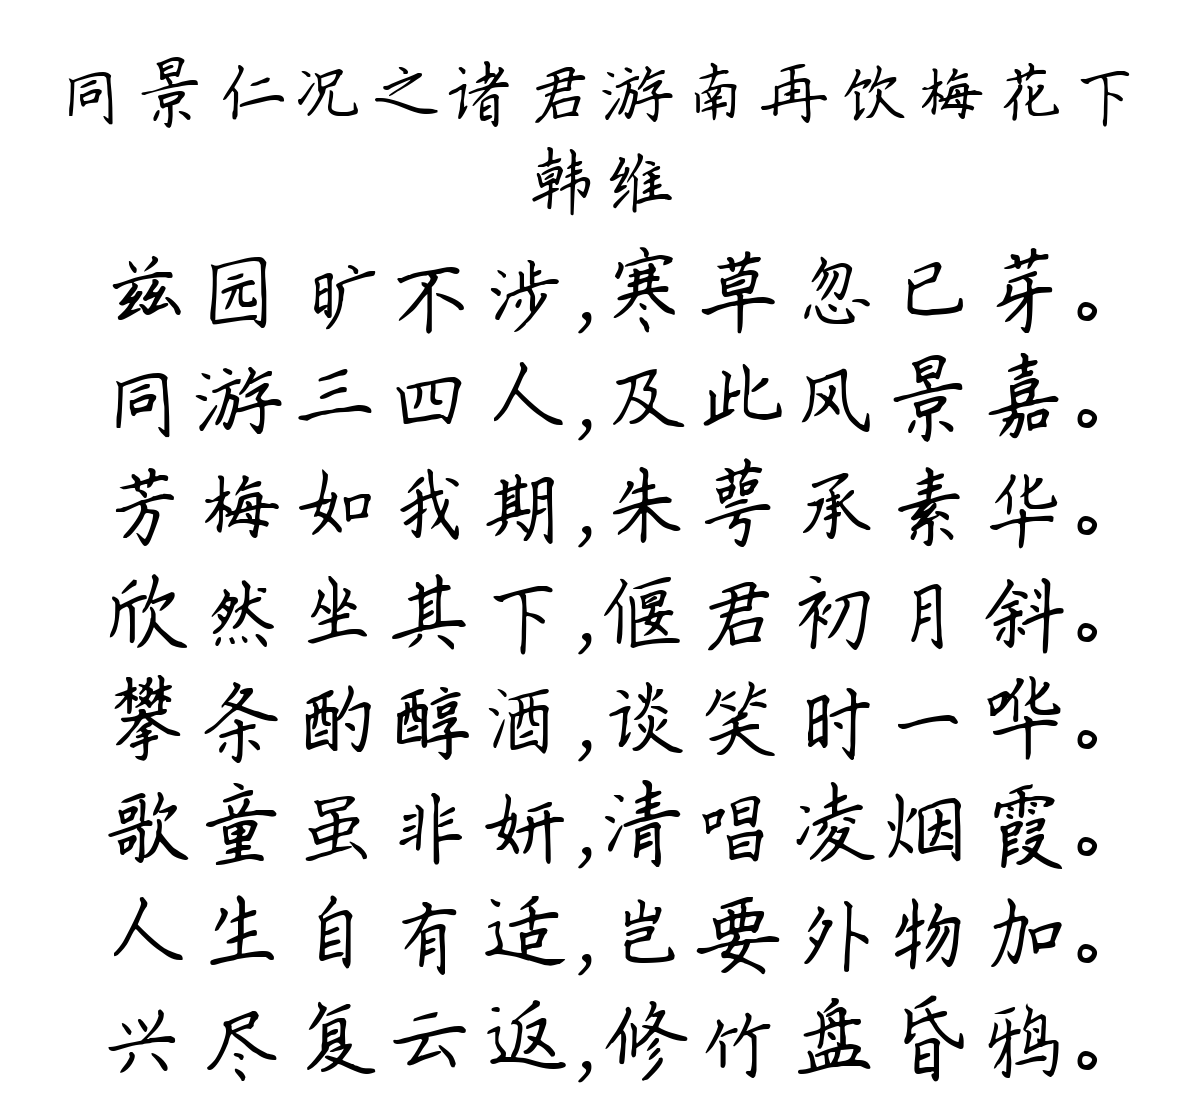 同景仁况之诸君游南再饮梅花下
韩维
兹园旷不涉,寒草忽已芽。
同游三四人,及此风景嘉。
芳梅如我期,朱萼承素华。
欣然坐其下,偃君初月斜。
攀条酌醇酒,谈笑时一哗。
歌童虽非妍,清唱凌烟霞。
人生自有适,岂要外物加。
兴尽复云返,修竹盘昏鸦。